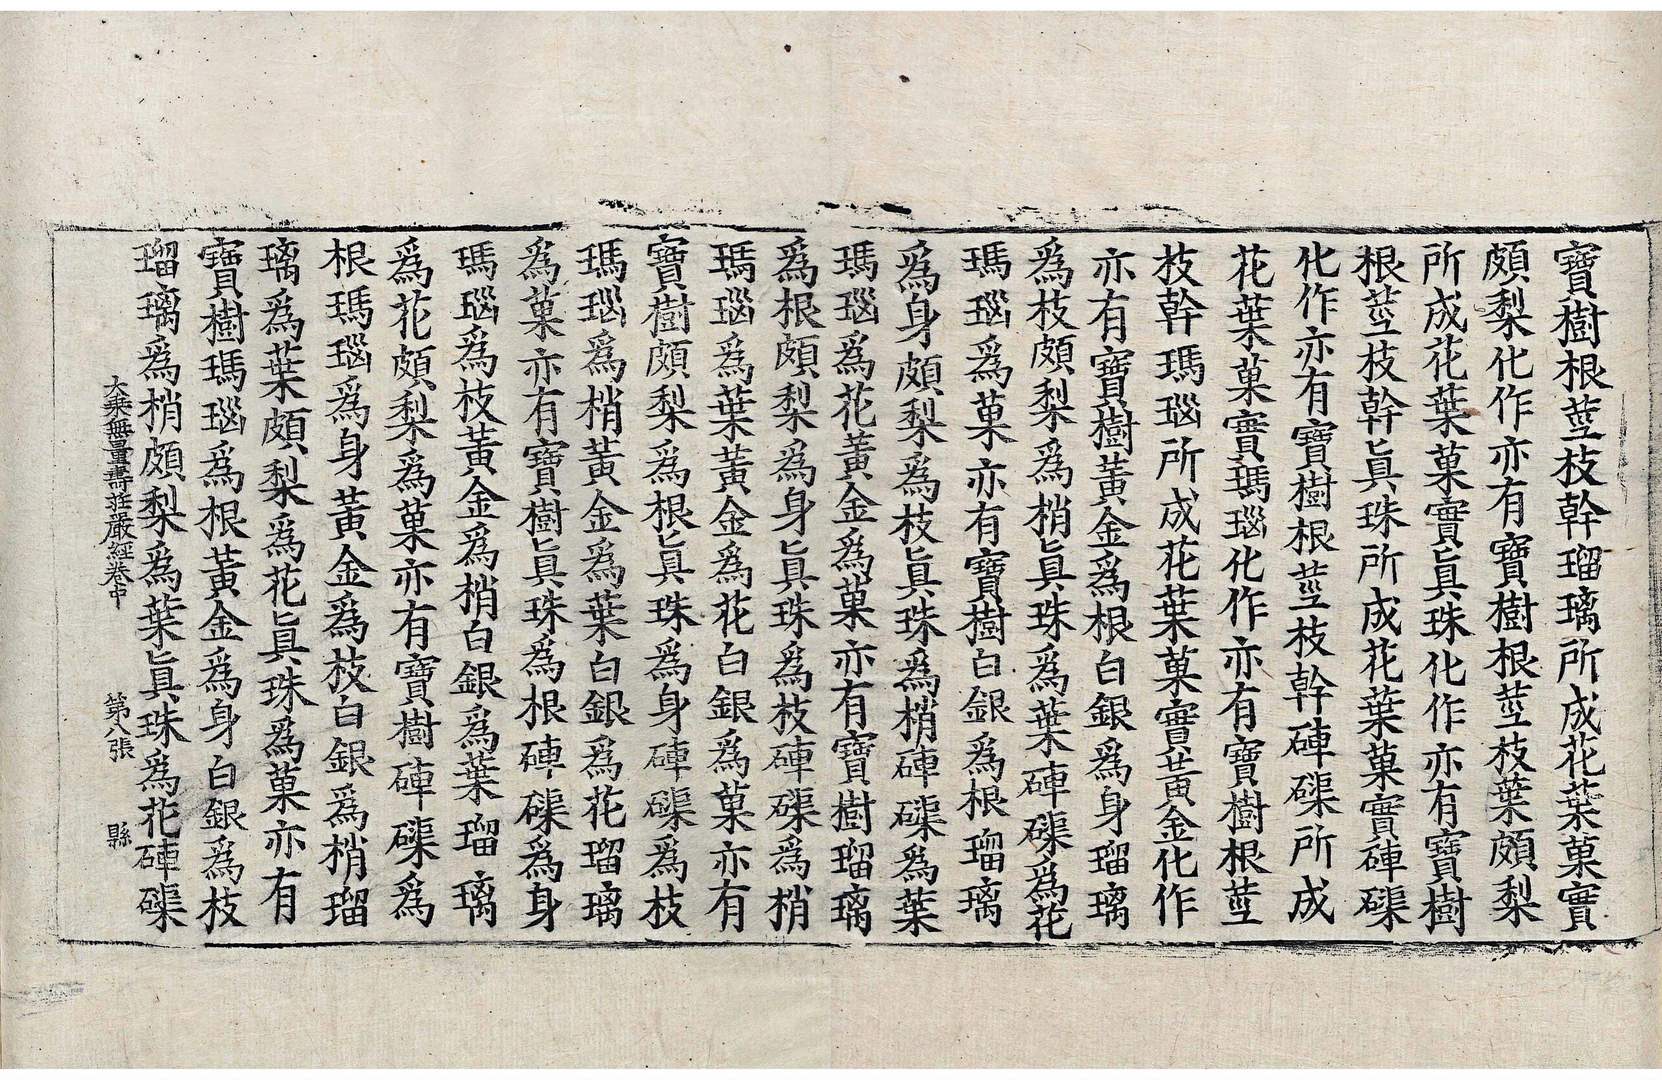 寶樹根莖枝幹瑠璃所成花葉菓實
頗梨化作亦有寶樹根莖枝葉頗梨
所成花葉菓實眞珠化作亦有寶樹
根莖枝幹眞珠所成花葉菓實硨磲
化作亦有寶樹根莖枝幹硨磲所成
花葉菓實瑪瑙化作亦有寶樹根莖
枝幹瑪瑙所成花葉菓實黃金化作
亦有寶樹黃金爲根白銀爲身瑠璃
爲枝頗梨爲梢眞珠爲葉硨磲爲花
瑪瑙爲菓亦有寶樹白銀爲根瑠璃
爲身頗梨爲枝眞珠爲梢硨磲爲葉
瑪瑙爲花黃金爲菓亦有寶樹瑠璃
爲根頗梨爲身眞珠爲枝硨磲爲梢
瑪瑙爲葉黃金爲花白銀爲菓亦有
寶樹頗梨爲根眞珠爲身硨磲爲枝
瑪瑙爲梢黃金爲葉白銀爲花瑠璃
爲菓亦有寶樹眞珠爲根硨磲爲身
瑪瑙爲枝黃金爲梢白銀爲葉瑠璃
爲花頗梨爲菓亦有寶樹硨磲爲
根瑪瑙爲身黃金爲枝白銀爲梢瑠
璃爲葉頗梨爲花眞珠爲菓亦有
寶樹瑪瑙爲根黃金爲身白銀爲枝
瑠璃爲梢頗梨爲葉眞珠爲花硨磲
大乘無量壽莊嚴經卷中 第八張 縣